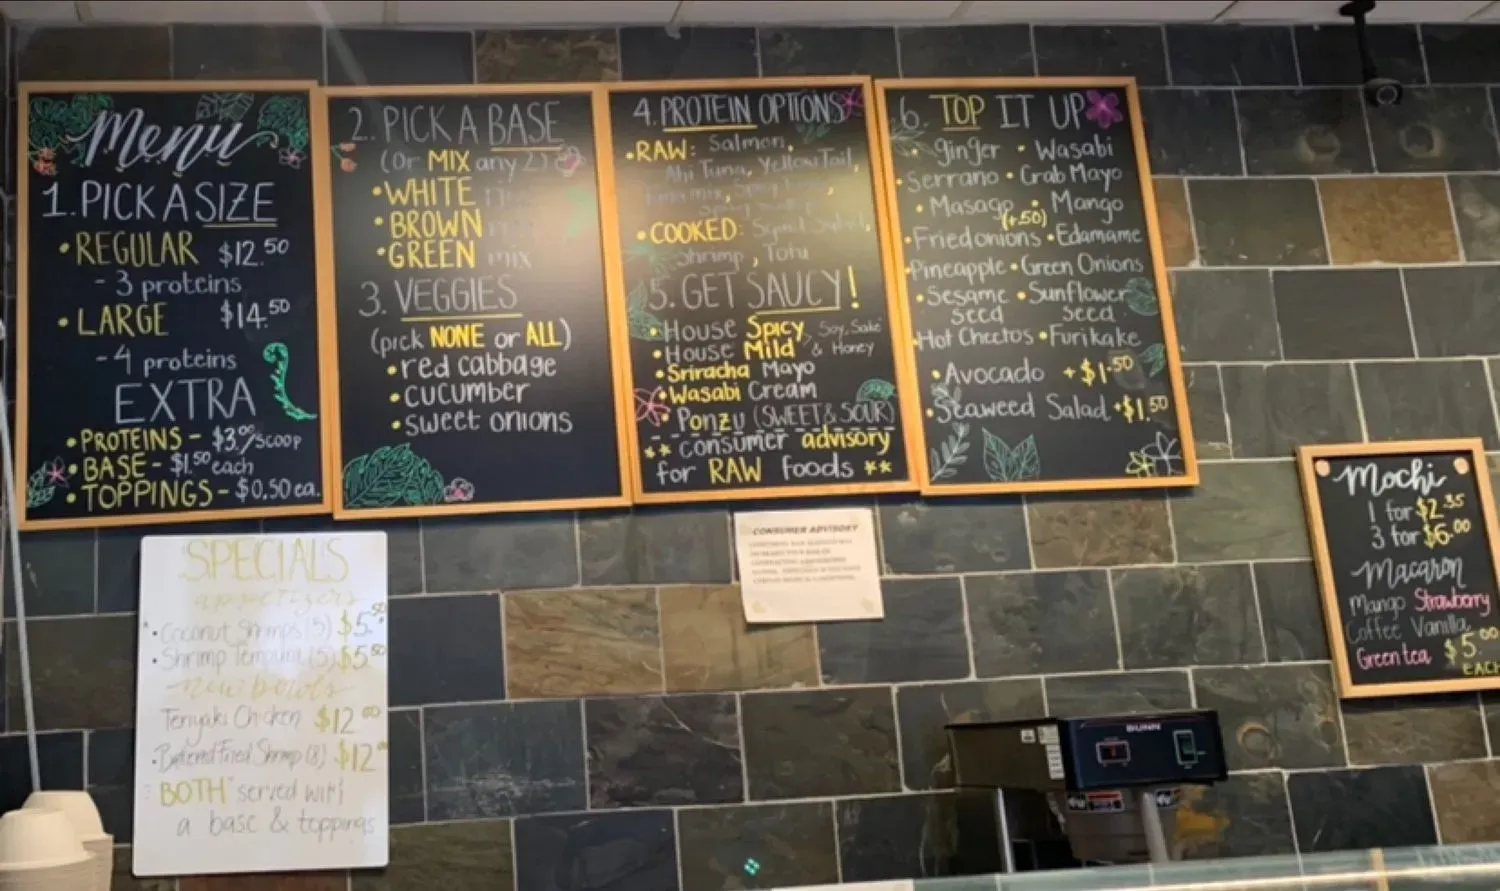 Menu
1. PICK A SIZE
• REGULAR $12.50
- 3 proteins
• LARGE $14.50
- 4 proteins
EXTRA
• PROTEINS - $3.00/scoop
• BASE - $1.50 each
• TOPPINGS - $0.50 ea.
2. PICK A BASE
(Or MIX any 2)
• WHITE
• BROWN
• GREEN mix
3. VEGGIES
(pick NONE or ALL)
• red cabbage
• cucumber
• sweet onions
4. PROTEIN OPTIONS
• RAW: Salmon,
Ahi Tuna, Yellow Tail,
• COOKED:
Shrimp, Tofu
5. GET SAUCY!
• House Spicy
• House Mild
Soy, Sake
& Honey
• Sriracha Mayo
• Wasabi Cream
• Ponzu (SWEET & SOUR)
** consumer advisory
for RAW foods **
6. TOP IT UP
• ginger • Wasabi
• Serrano • Crab Mayo
• Masago • Mango
(+.50)
• Fried onions • Edamame
• Pineapple • Green Onions
• Sesame • Sunflower
Seed Seed
• Hot Cheetos • Furikake
• Avocado +$1.50
• Seaweed Salad +$1.50
Mochi
1 for $2.35
3 for $6.00
Macaron
Mango Strawberry
Coffee Vanilla
Green tea $5.00
EACH
SPECIALS
appetizers
• Coconut Shrimps (5) $5.50
• Shrimp Tempura (5) $5.50
new bowls
Teriyaki Chicken $12.00
• Battered Fried Shrimp (8) $12
BOTH served with
a base & toppings
CONSUMER ADVISORY
BUNN